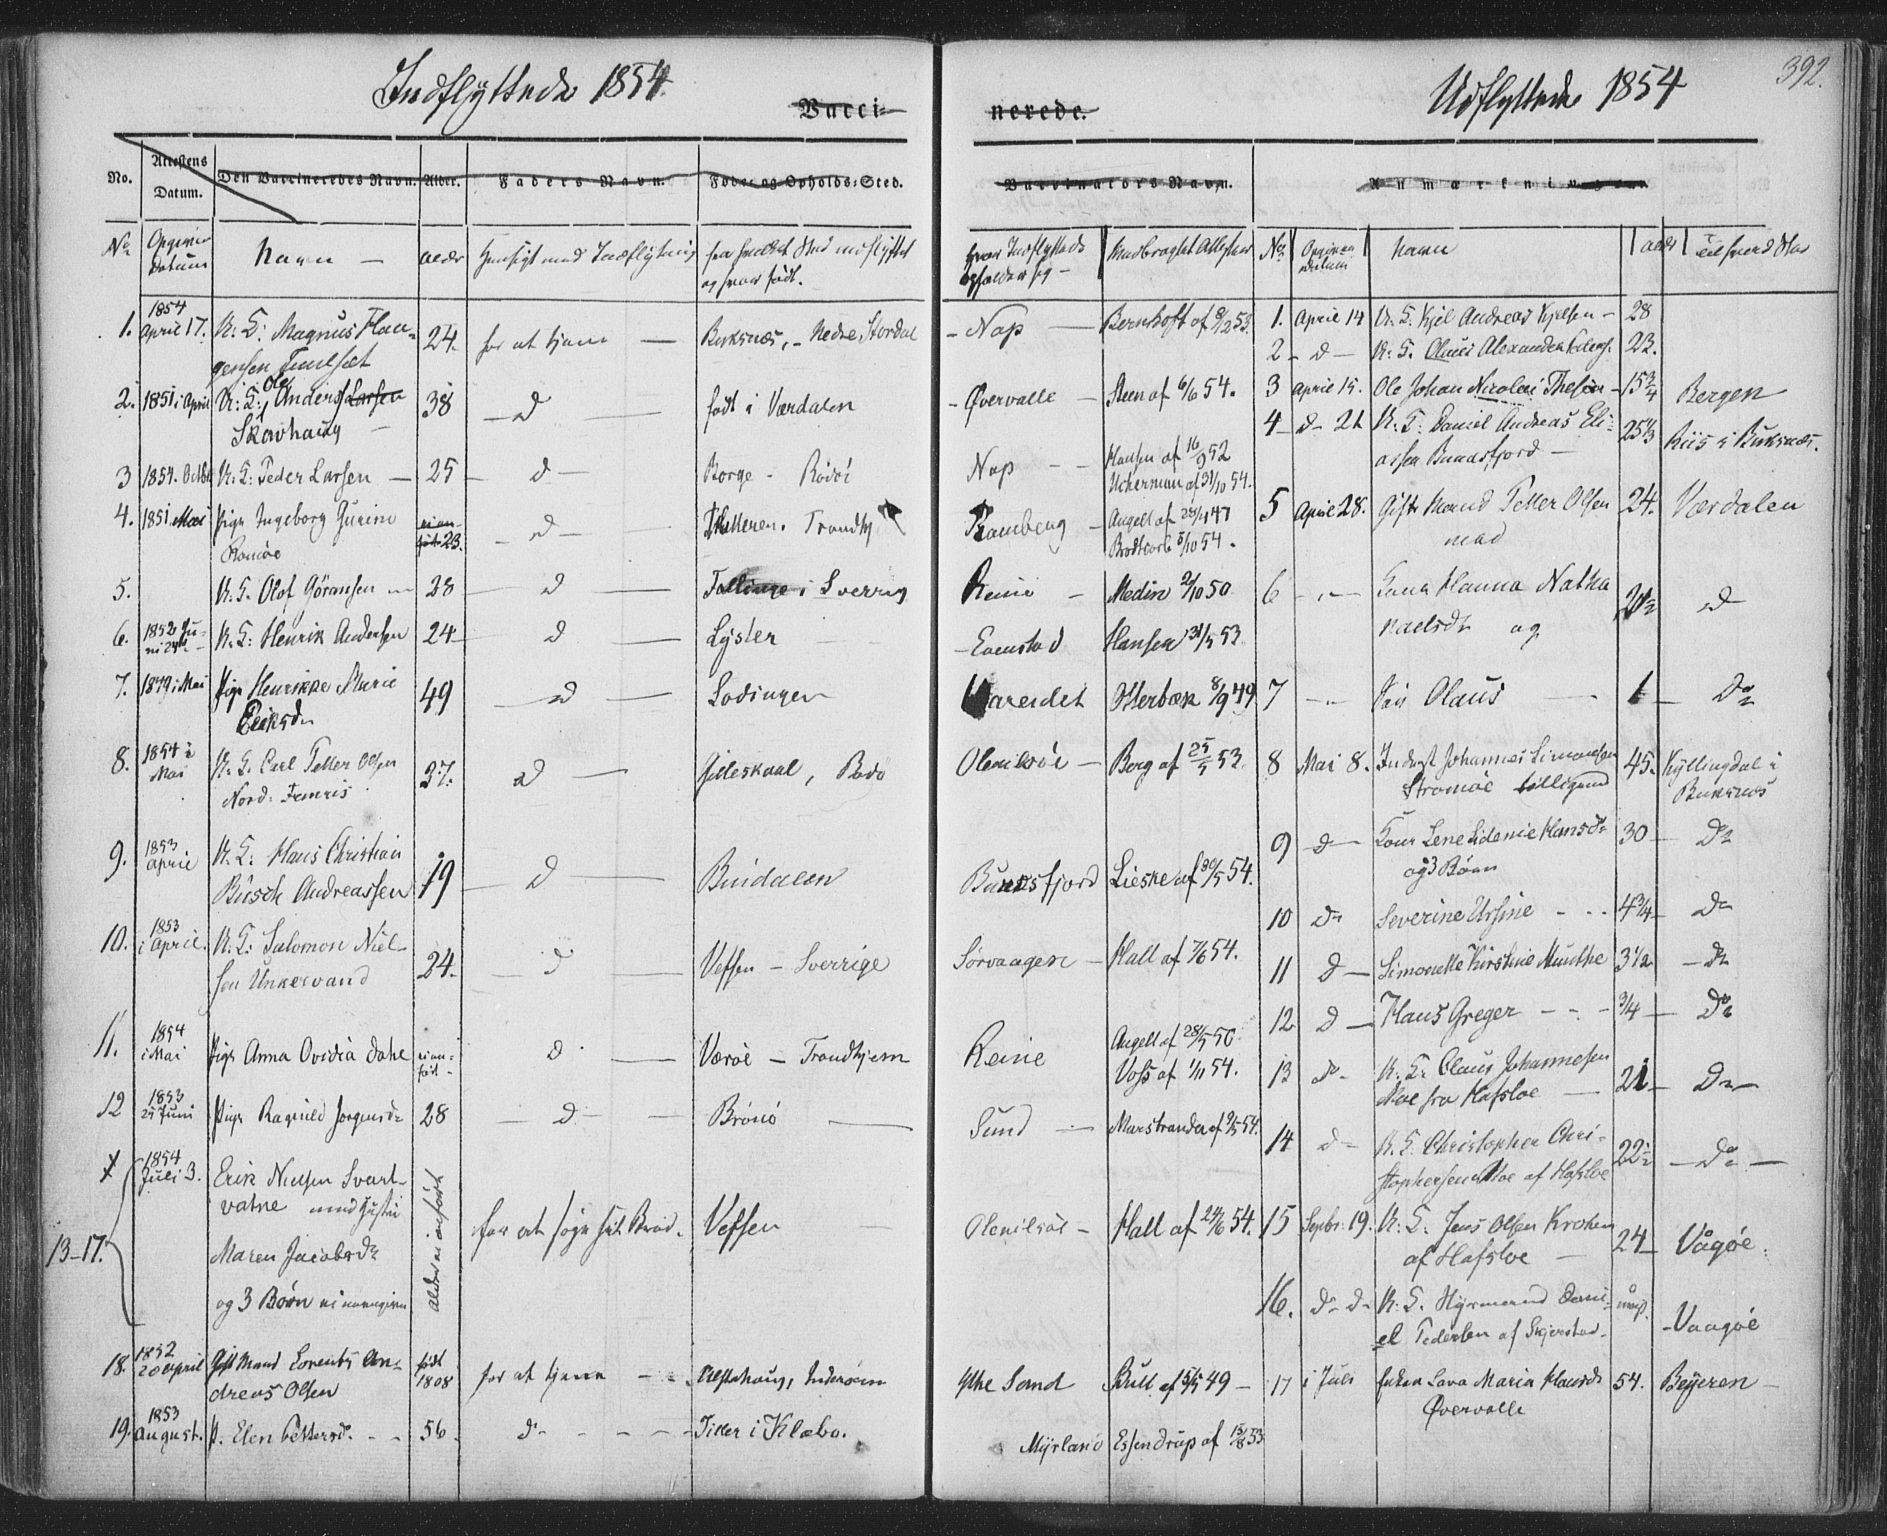 Indflyttede 1854
Vacci-
nerede.
Udflyttede 1854
392.
No.
Attestens Datum.
Den Vaccineredes Navn.
Alder.
Faders Navn.
Føde- og Opholds-Sted.
Vaccinators Navn.
No
Opgiven Datum
Navn
alder
Hensigt med Indflytning
fra hvilket Sted indflyttet
og hvor født.
hvor Indflyttede
opholder sig
Medbragte Attester
No
Opgiven datum
Navn
alder
til hvad Sted
1. 1854 April 17. U. K. Magnus Hau-
24. for at tjene Buksnæs, - Nedre Stordal
- Nap Bernhoft af 8/2 53.
2. 1851 i April U. K. Ole Anders Larsen
Skavhaug
38 d født i Værdalen
- Øvervalle Steen af 6/6 54.
3 1854. Octbr U. K. Peder Larsen 25 d Borge - Rødöi
Nap Hansen af 16/9 52
Uckerman af 31/10 54.
4. 1851 Mai Pige Ingeborg Gurine
Romöe
23. d Trondhj
Ramberg Angell af 28/4 47
5. U. K. Olof Göransen 28 d i Sverrig
Reine Medin 2/10 50
6. 1852 Ju-
ni 24de U. K. Henrik Andersen 24 d Lyster
- Evenstad Hansen 31/5 53
7. 1849 i Mai Pige Henrikke Marie
Eriksdr
49 d Lodingen
Vareidet Otterbæk 8/9 49
8. 1854 i Mai U. K. Carl Petter Olsen
Nord: Femris
27. d Gilleskaal, Bodo
Olenilsöe Borg af 25/5 53.
9. 1853 April U. K. Hans Christian
Büsch Andreassen
19 d Bindalen
Bunesfjord Lieske af 30/5 54.
10. 1853 i April. U. K. Salomon Niel-
sen Unkervand
24. d Vefsen - Sverrige
Sørvaagen Hall af 7/6 54.
11. 1854 i Mai Pige Anna Ovidia Dahl
ei an-
ført d Værøe - Trondhjem
Reine Angell af 28/5 50.
Voss af 1/11 54.
12 1853 25 Juni Pige Ragnild Jørgensdr 28 d Brönö
Sund Marstrander af 9/5 54.
13-17. 1854 Juli 3. Erik Nielsen Svart-
vatne med Hustru
Maren Jacobsdr
og 3 Børn ei navngivne
alder ei anført
for at søge sit Brød. Vefsen
Olenilsöe - Hall af 24/6 54.
18. 1852 20 April Gift Mand Lorents An-
dreas Olsen
født 1808 for at tjene Alstahaug, Inderöen
Ytre Sand Bull af 5/5 49
19. 1853 August. P. Elen Pettersd. 56 d Tiller i Klæbo.
Myrland Essendrup af 15/8 53
1. April 14 U. K. Kjel Andreas Kjelsen 28
2 d U. K. Claus Alexander 23.
3 April 15. Ole Johan Nicolai Thesen 15 3/4 Bergen
4 d 21 U. K. Daniel Andreas Eli-
assen Bunesfjord
25 1/3 Riis i Buksnæs.
5 April 28. Gift Mand Petter Olsen
med
24. Værdalen
6 Kone Hanna Natha
naelsdr og
d
7 Søn Olaus 1 Do
8 Mai 8. Inderst Johannes Simonsen
Stromöe tilligemed
45. Kyllingdal i
Buksnæs
9 d Kone Lene Sidenie Hansdr
og 3 Börn
30 Do
10 do Severine Ursine 4 3/4 Do
11 d Simonelle Kirstine Munthe 3 1/2 Do
12 d Hans Greger 3/4 Do
13 do U. K. Claus Johannesen
Moe fra Hafsloe
21 Do
14 d U. K. Christopher Chri-
stophersen Moe af Hafsloe
22 1/2 Do
15 Septbr. 19. U. K. Jens Olsen Kroken
af Hafsloe
24 Vågöe.
16. do do U. K. Hyrmand Dani-
el Pedersen af Skjerstad
Vaagöe
17 i Juli Enken Lava Maria Hansdr
Øvervalle
54. Beyeren